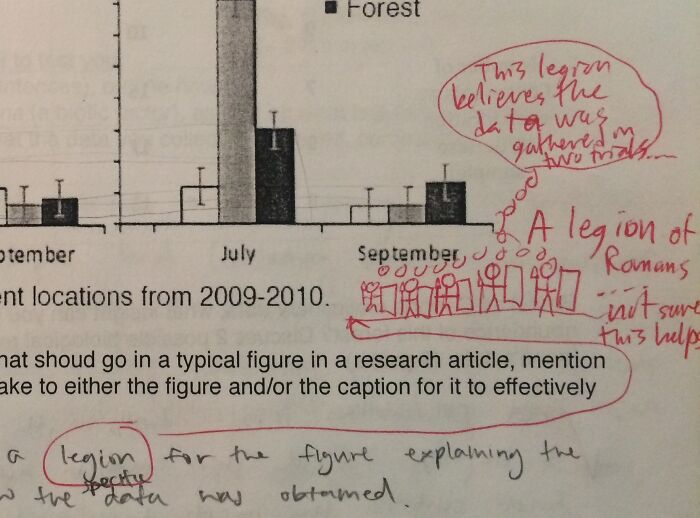 Forest
This legion
believes the
data was
gathered in
two trials....
A legion of
Romans
....
not sure
this helps
ptember
July
September
ent locations from 2009-2010.
hat shoud go in a typical figure in a research article, mention
ake to either the figure and/or the caption for it to effectively
a legion for the figure explaining the
specific
w the data was obtained.